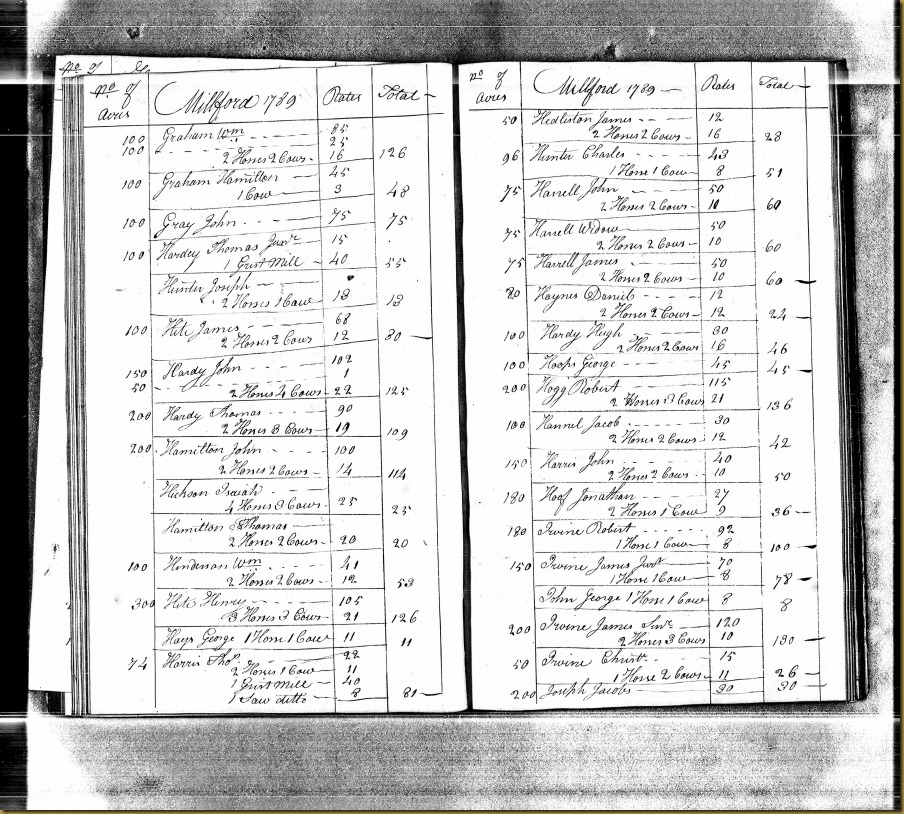 No of
No of Acres Millford 1789 Rates Total
100 Graham Wm 85
100 25
2 Horses 2 Cows 16 126
100 Graham Hamilton 45
1 Cow 3 48
100 Gray John 75 75
100 Hardey Thomas Junr 15
1 Grist Mill 40 55
Hunter Joseph
2 Horses 1 Cow 13 13
100 Hite James 68
2 Horses 2 Cows 12 80
150 Hardy John 102
50 1
2 Horses 4 Cows 22 125
200 Hardy Thomas 90
2 Horses 3 Cows 19 109
200 Hamilton John 100
2 Horses 2 Cows 14 114
Hickson Isaiah
4 Horses 3 Cows 25 25
Hamilton Thomas
2 Horses 2 Cows 20 20
100 Henderson Wm 41
2 Horses 2 Cows 12 53
300 Hite Henry 105
3 Horses 3 Cows 21 126
Hays George 1 Horse 1 Cow 11 11
74 Harris Thos 22
2 Horses 1 Cow 11
1 Grist Mill 40
1 Saw ditto 8 81
No of Acres Millford 1789 Rates Total
50 Hedleston James 12
2 Horses 2 Cows 16 28
96 Hunter Charles 43
1 Horse 1 Cow 8 51
75 Harrell John 50
2 Horses 2 Cows 10 60
75 Harrell Widow 50
2 Horses 2 Cows 10 60
75 Harrell James 50
2 Horses 2 Cows 10 60
80 Haynes Daniel 12
2 Horses 2 Cows 12 24
100 Hardy Hugh 30
2 Horses 2 Cows 16 46
100 Hoops George 45 45
200 Hogg Robert 115
2 Horses 3 Cows 21 136
100 Hannel Jacob 30
2 Horses 2 Cows 12 42
150 Harris John 40
2 Horses 2 Cows 10 50
180 Hoof Jonathan 27
2 Horses 1 Cow 9 36
180 Irvine Robert 92
1 Horse 1 Cow 8 100
150 Irvine James Junr 70
1 Horse 1 Cow 8 78
John George 1 Horse 1 Cow 8 8
200 Irvine James Senr 120
2 Horses 3 Cows 10 130
50 Irvine Christr 15
1 Horse 2 Cows 11 26
200 Joseph Jacobs 30 30